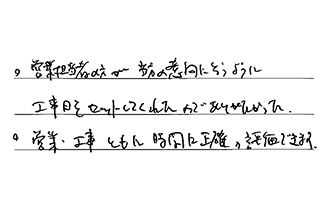 ○ 営業担当者の方が当方の意向にそうように
工事日をセットしてくれたのでありがたかった.
○ 営業・工事ともに時間に正確,評価できます.